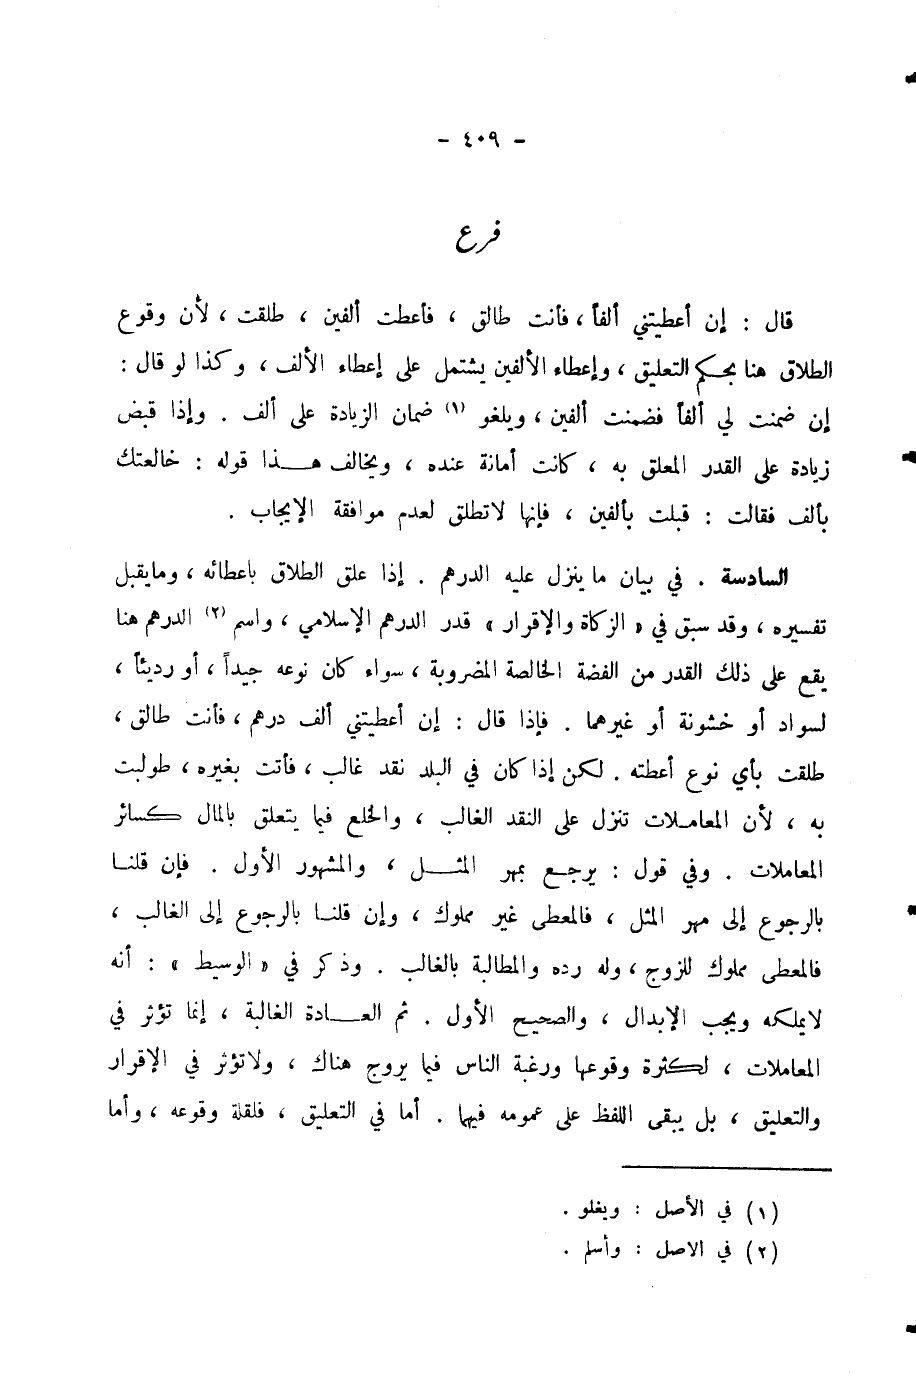 - ٤٠٩ -
فرع
قال : إن أعطيتني ألفاً ، فأنت طالق ، فأعطت ألفين ، طلقت ، لأن وقوع
الطلاق هنا بحكم التعليق ، وإعطاء الألفين يشتمل على إعطاء الألف ، وكذا لو قال :
إن ضمنت لي ألفاً فضمنت ألفين ، ويلغو (١) ضمان الزيادة على ألف . وإذا قبض
زيادة على القدر المعلق به ، كانت أمانة عنده ، ويخالف هذا قوله : خالعتك
بألف فقالت : قبلت بألفين ، فإنها لاتطلق لعدم موافقة الإيجاب .
السادسة . في بيان ما ينزل عليه الدرهم . إذا علق الطلاق باعطائه ، ومايقبل
تفسيره ، وقد سبق في « الزكاة والإقرار » قدر الدرهم الإسلامي ، واسم (٢) الدرهم هنا
يقع على ذلك القدر من الفضة الخالصة المضروبة ، سواء كان نوعه جيداً ، أو رديئاً ،
لسواد أو خشونة أو غيرهما . فإذا قال : إن أعطيتني ألف درهم ، فأنت طالق ،
طلقت بأي نوع أعطته . لكن إذا كان في البلد نقد غالب ، فأتت بغيره ، طولبت
به ، لأن المعاملات تنزل على النقد الغالب ، والخلع فيما يتعلق بالمال كسائر
المعاملات . وفي قول : يرجع بمهر المثل ، والمشهور الأول . فإن قلنا
بالرجوع إلى مهر المثل ، فالمعطى غير مملوك ، وإن قلنا بالرجوع إلى الغالب ،
فالمعطى مملوك للزوج ، وله رده والمطالبة بالغالب . وذكر في « الوسيط » : أنه
لايملكه ويجب الإبدال ، والصحيح الأول . ثم العادة الغالبة ، إنما تؤثر في
المعاملات ، لكثرة وقوعها ورغبة الناس فيما يروج هناك ، ولاتؤثر في الإقرار
والتعليق ، بل يبقى اللفظ على عمومه فيهما . أما في التعليق ، فلقلة وقوعه ، وأما
(١) في الأصل : ويغلو .
(٢) في الاصل : وأسلم .